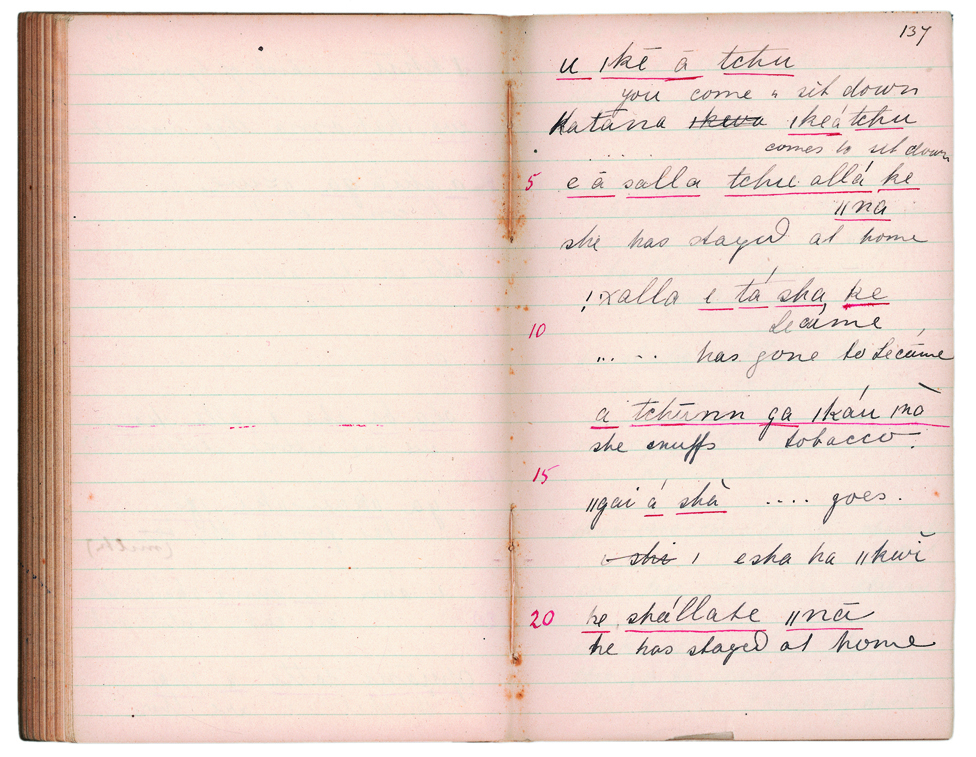 137
u ıkē ā tchu
you come " sit down
Katána ı̶k̶e̶v̶a̶ ıkeátchu
. . . comes to sit down
5 e ā salla tchue allá ke
ǁna
she has stayed at home
!xalla e tá sha ke
Lecáme
10
" . . . has gone to Lecáme
a tchūnn ga ıkáu ıno
she snuffs tobacco.
15
ǁgai á shà .... goes.
s̶h̶i̶ ı esha ha ǁkwĩ
20 ke shállate ǁnā
he has stayed at home